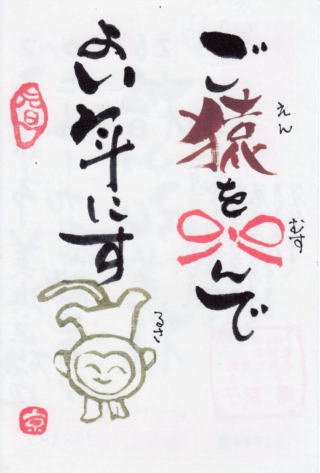 ご猿をんで
えん
むす
よい年にす
るさ
元旦
京